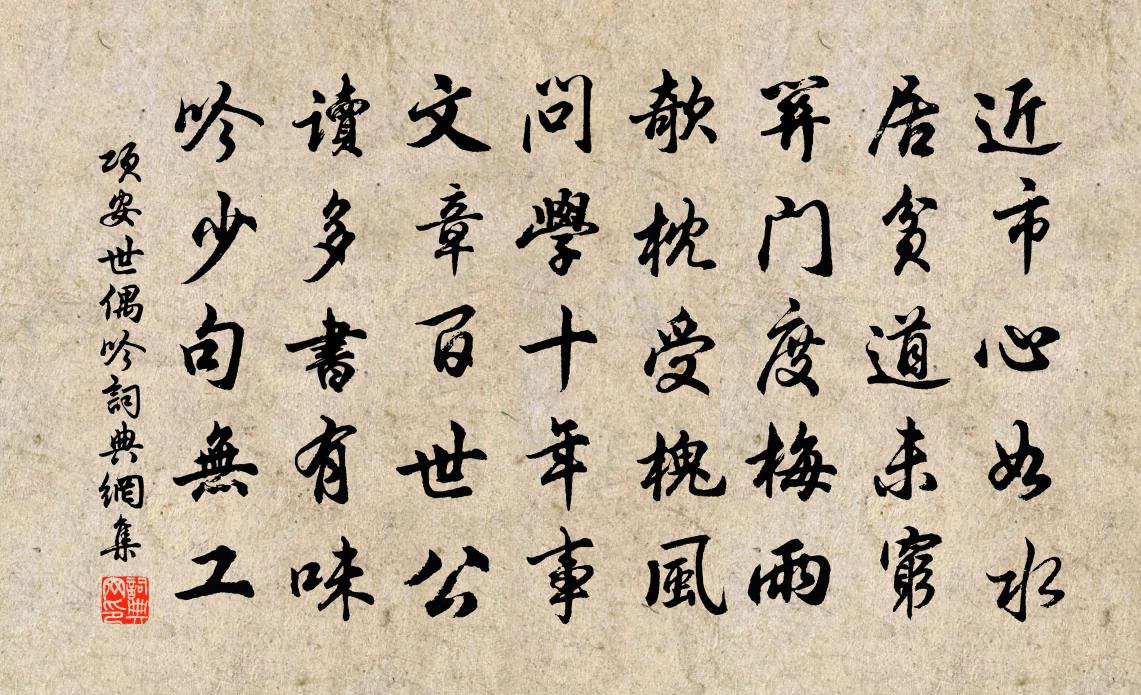 近市心如水
居貧道未窮
開門度梅雨
欹枕受槐風
問學十年事
文章百世公
讀多書有味
吟少句無工
項安世偶吟詞典網集
詞典网印